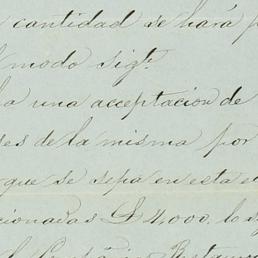 cantidad se hará p
modo sigte
a una acceptacion de
es de la misma por
que se sepa en esta
cionadas $4,000. lo s